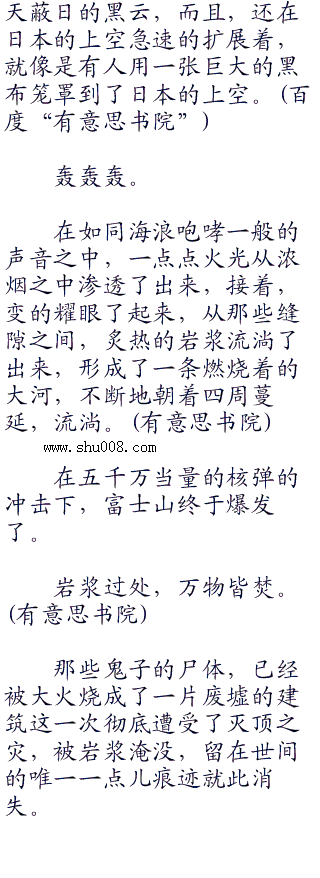 天蔽日的黑云，而且，还在
日本的上空急速的扩展着，
就像是有人用一张巨大的黑
布笼罩到了日本的上空。(百
度“有意思书院”)
轰轰轰。
在如同海浪咆哮一般的
声音之中，一点点火光从浓
烟之中渗透了出来，接着，
变的耀眼了起来，从那些缝
隙之间，炙热的岩浆流淌了
出来，形成了一条燃烧着的
大河，不断地朝着四周蔓
延，流淌。(有意思书院)
www.shu008.com
在五千万当量的核弹的
冲击下，富士山终于爆发
了。
岩浆过处，万物皆焚。
(有意思书院)
那些鬼子的尸体，已经
被大火烧成了一片废墟的建
筑这一次彻底遭受了灭顶之
灾，被岩浆淹没，留在世间
的唯一一点儿痕迹就此消
失。